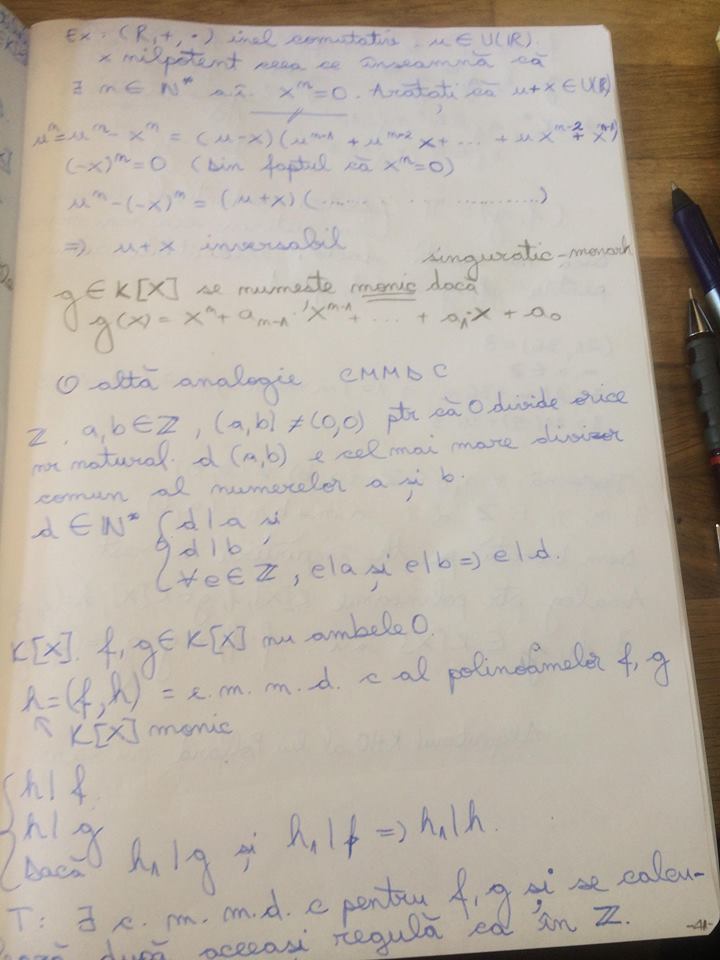 Ex: (R, +, ·) inel comutativ. u ∈ U(R).
x nilpotent ceea ce înseamnă că
∃ n ∈ N* a.î. x^n = 0. Arătați că u+x ∈ U(R)
u^n = u^n - x^n = (u-x)(u^{n-1} + u^{n-2} x + ... + u x^{n-2} + x^{n-1})
(-x)^n = 0 (din faptul că x^n = 0)
u^n - (-x)^n = (u+x)(...............)
=> u+x inversabil
singuratic - monarh
g ∈ K[X] se numește monic dacă
g(x) = X^n + a_{n-1} · X^{n-1} + ... + a_1 · X + a_0
O altă analogie CMMDC
Z. a, b ∈ Z, (a, b) ≠ (0,0) ptr că 0 divide orice
nr natural. d (a,b) e cel mai mare divizor
comun al numerelor a și b.
d ∈ N* { d | a și
d | b
∀ e ∈ Z, e|a și e|b => e|d.
K[X]. f, g ∈ K[X] nu ambele 0.
h = (f, h) = c. m. m. d. c al polinoamelor f, g
↖ K[X] monic
{ h | f
h | g
Dacă h_1 | g și h_1 | f => h_1 | h.
T: ∃ c. m. m. d. c pentru f, g și se calcu-
după aceeași regulă ca în Z.
-41-